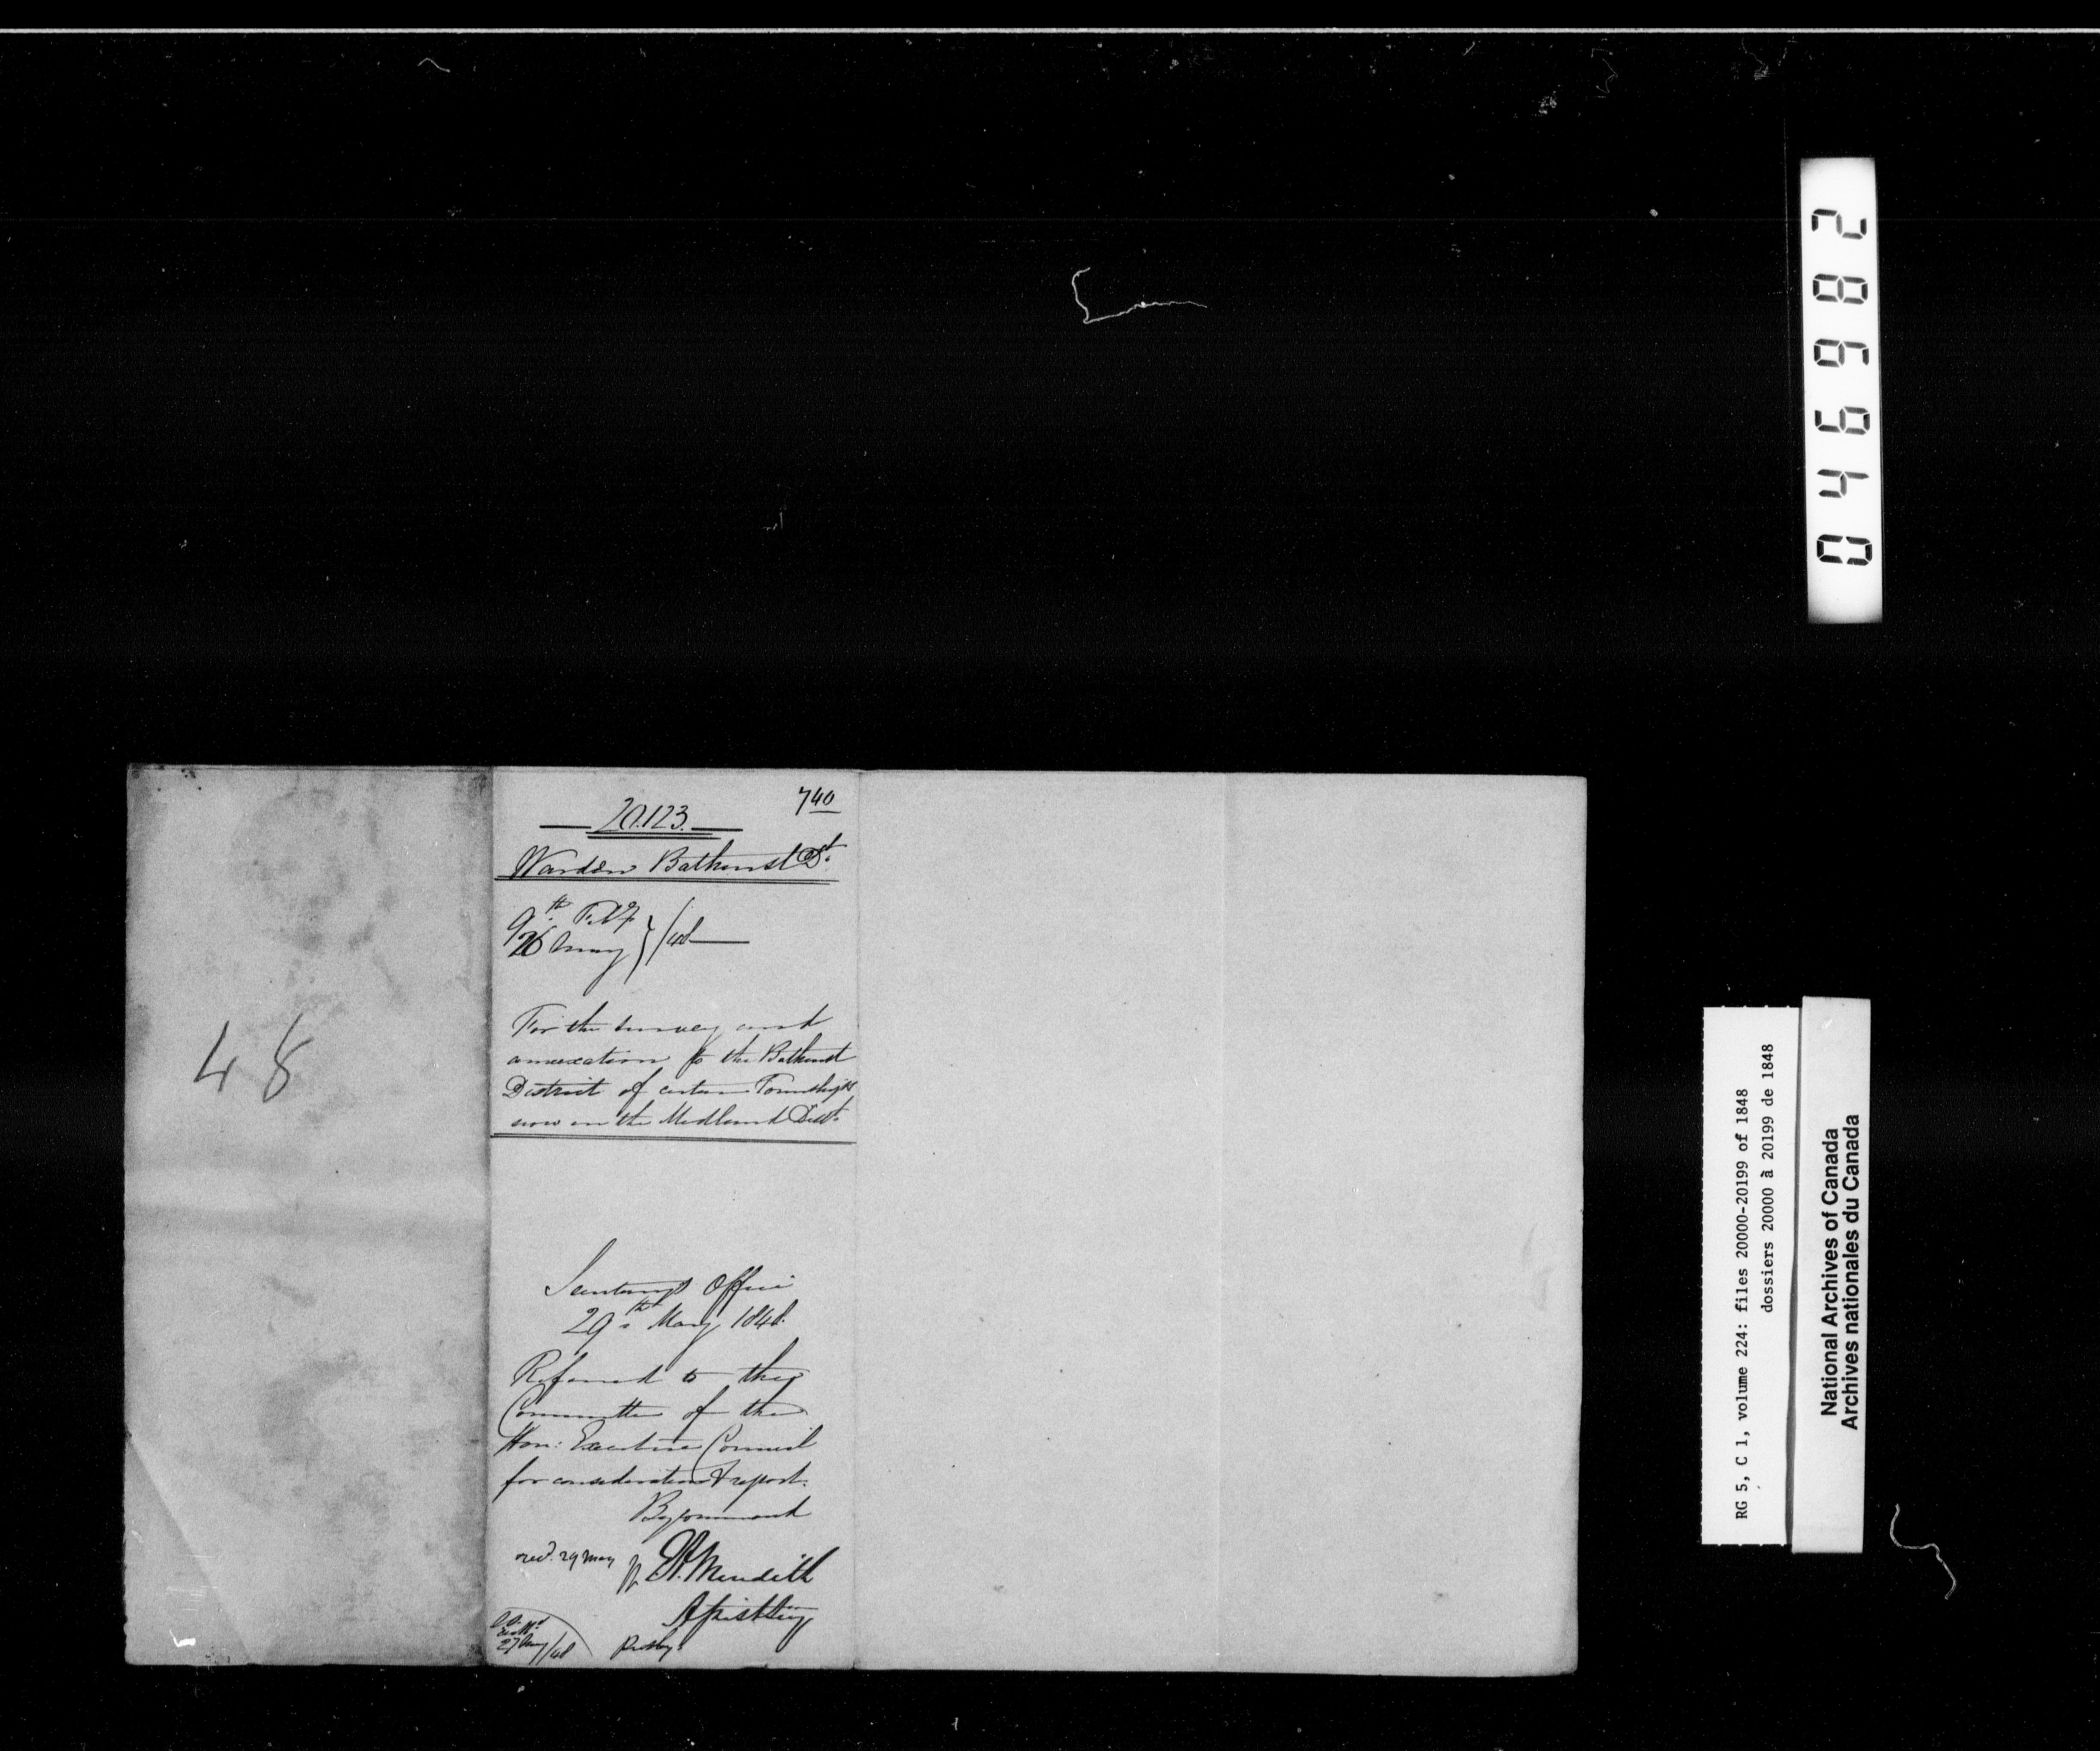 740
20.123.
Warden Bathurst Dt.
9th. Feby
26 May } /48
For the survey and
annexation to the Bathurst
District of certain Townships
now in the Midland Dist.
48
Secretary's Office
29th May 1848.
Referred to the
Committee of the
Hon: Executive Council
for consideration & report.
By command
recd. 29 May
E.A. Meredith
Asst Secy
27 May/48
046982
RG 5, C 1, volume 224: files 20000-20199 of 1848
dossiers 20000 à 20199 de 1848
National Archives of Canada
Archives nationales du Canada